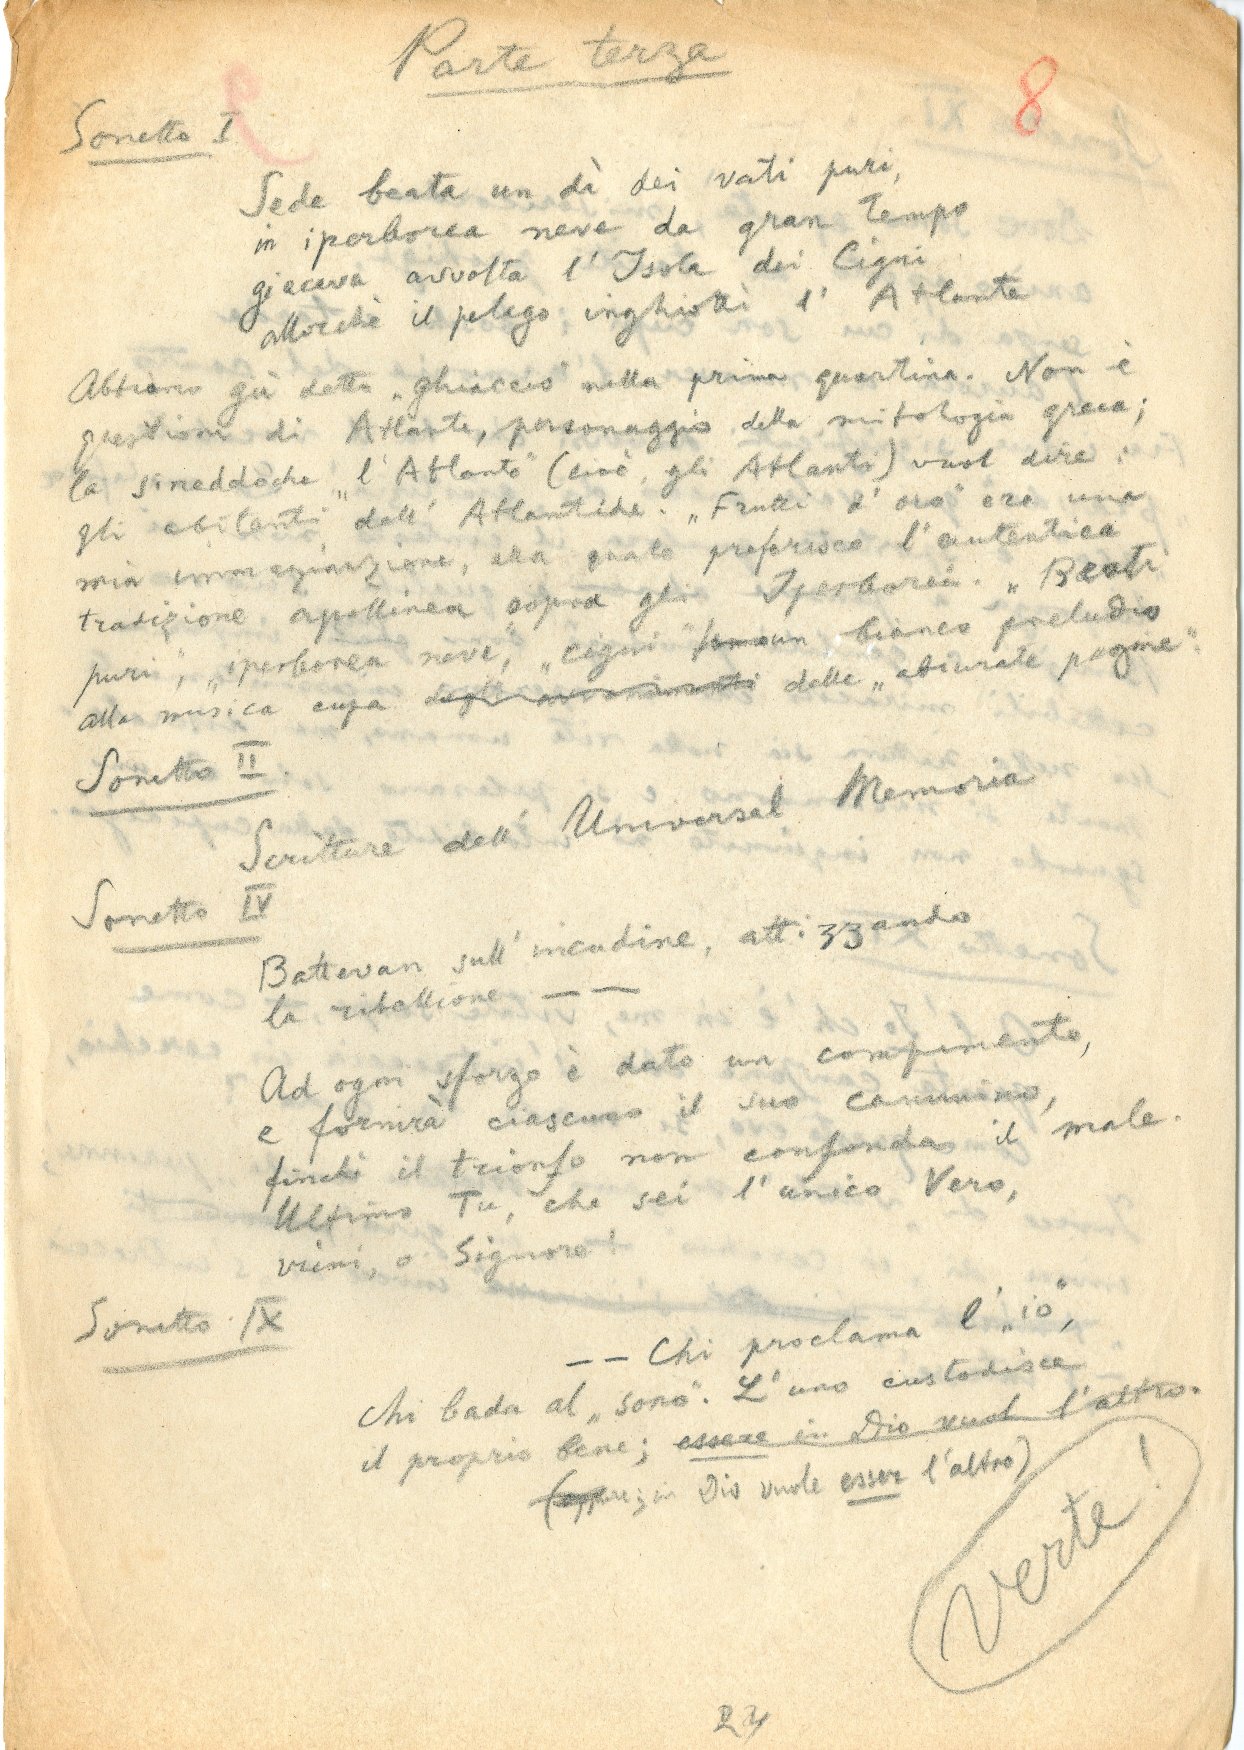 Parte terza
8
Sonetto I
Sede beata un dì dei vati puri,
in iperborea neve da gran tempo
giaceva avvolta l'Isola dei Cigni
allorchè il pelago inghiottì l'Atlante
Abbiamo già detto „ghiaccio" nella prima quartina. Non è
questione di Atlante, personaggio della mitologia greca;
la sineddoche „l'Atlante" (cioè, gli Atlanti) vuol dire:
gli abitanti dell'Atlantide. „Frutti d'oro" era una
mia immaginazione, alla quale preferisco l'autentica
tradizione apollinea sopra gli Iperborei. „Beati
puri", „iperborea neve", „cigni" un bianco preludio
alla musica cupa delle „abiurate pagine".
Sonetto II
Scritture dell'Universal Memoria
Sonetto IV
Battevan sull'incudine, attizzando
la ribellione — —
Ad ogni sforzo è dato un compimento,
e fornirà ciascuno il suo cammino,
finchè il trionfo non confonda il male.
Ultimo Tu, che sei l'unico Vero,
vieni, o Signore!
Sonetto IX
— — Chi proclama l'„io",
chi bada al „sono". L'uno custodisce
il proprio bene; essere in Dio vuol l'altro.
(oppure; in Dio vuole esser l'altro)
Verte!
24